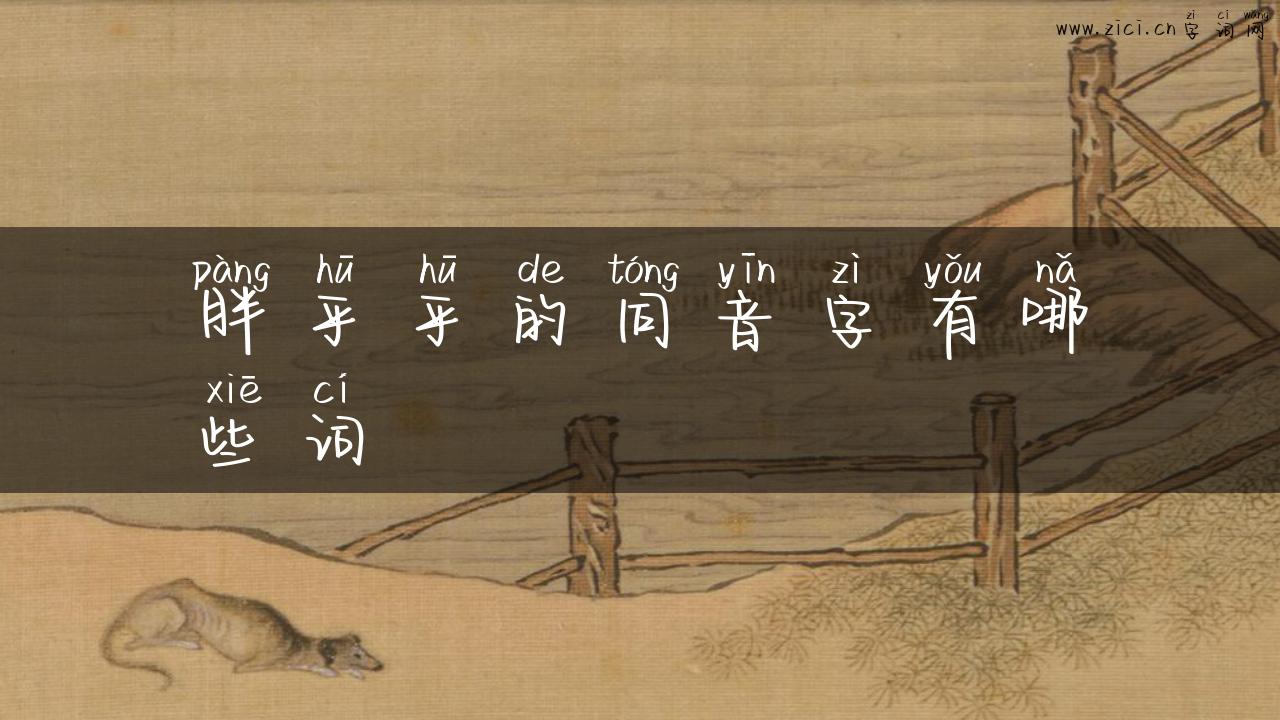 zì cí wǎng
www.zici.cn 字 词 网
pàng hū hū de tóng yīn zì yǒu nǎ
胖 乎 乎 的 同 音 字 有 哪
xiē cí
些 词